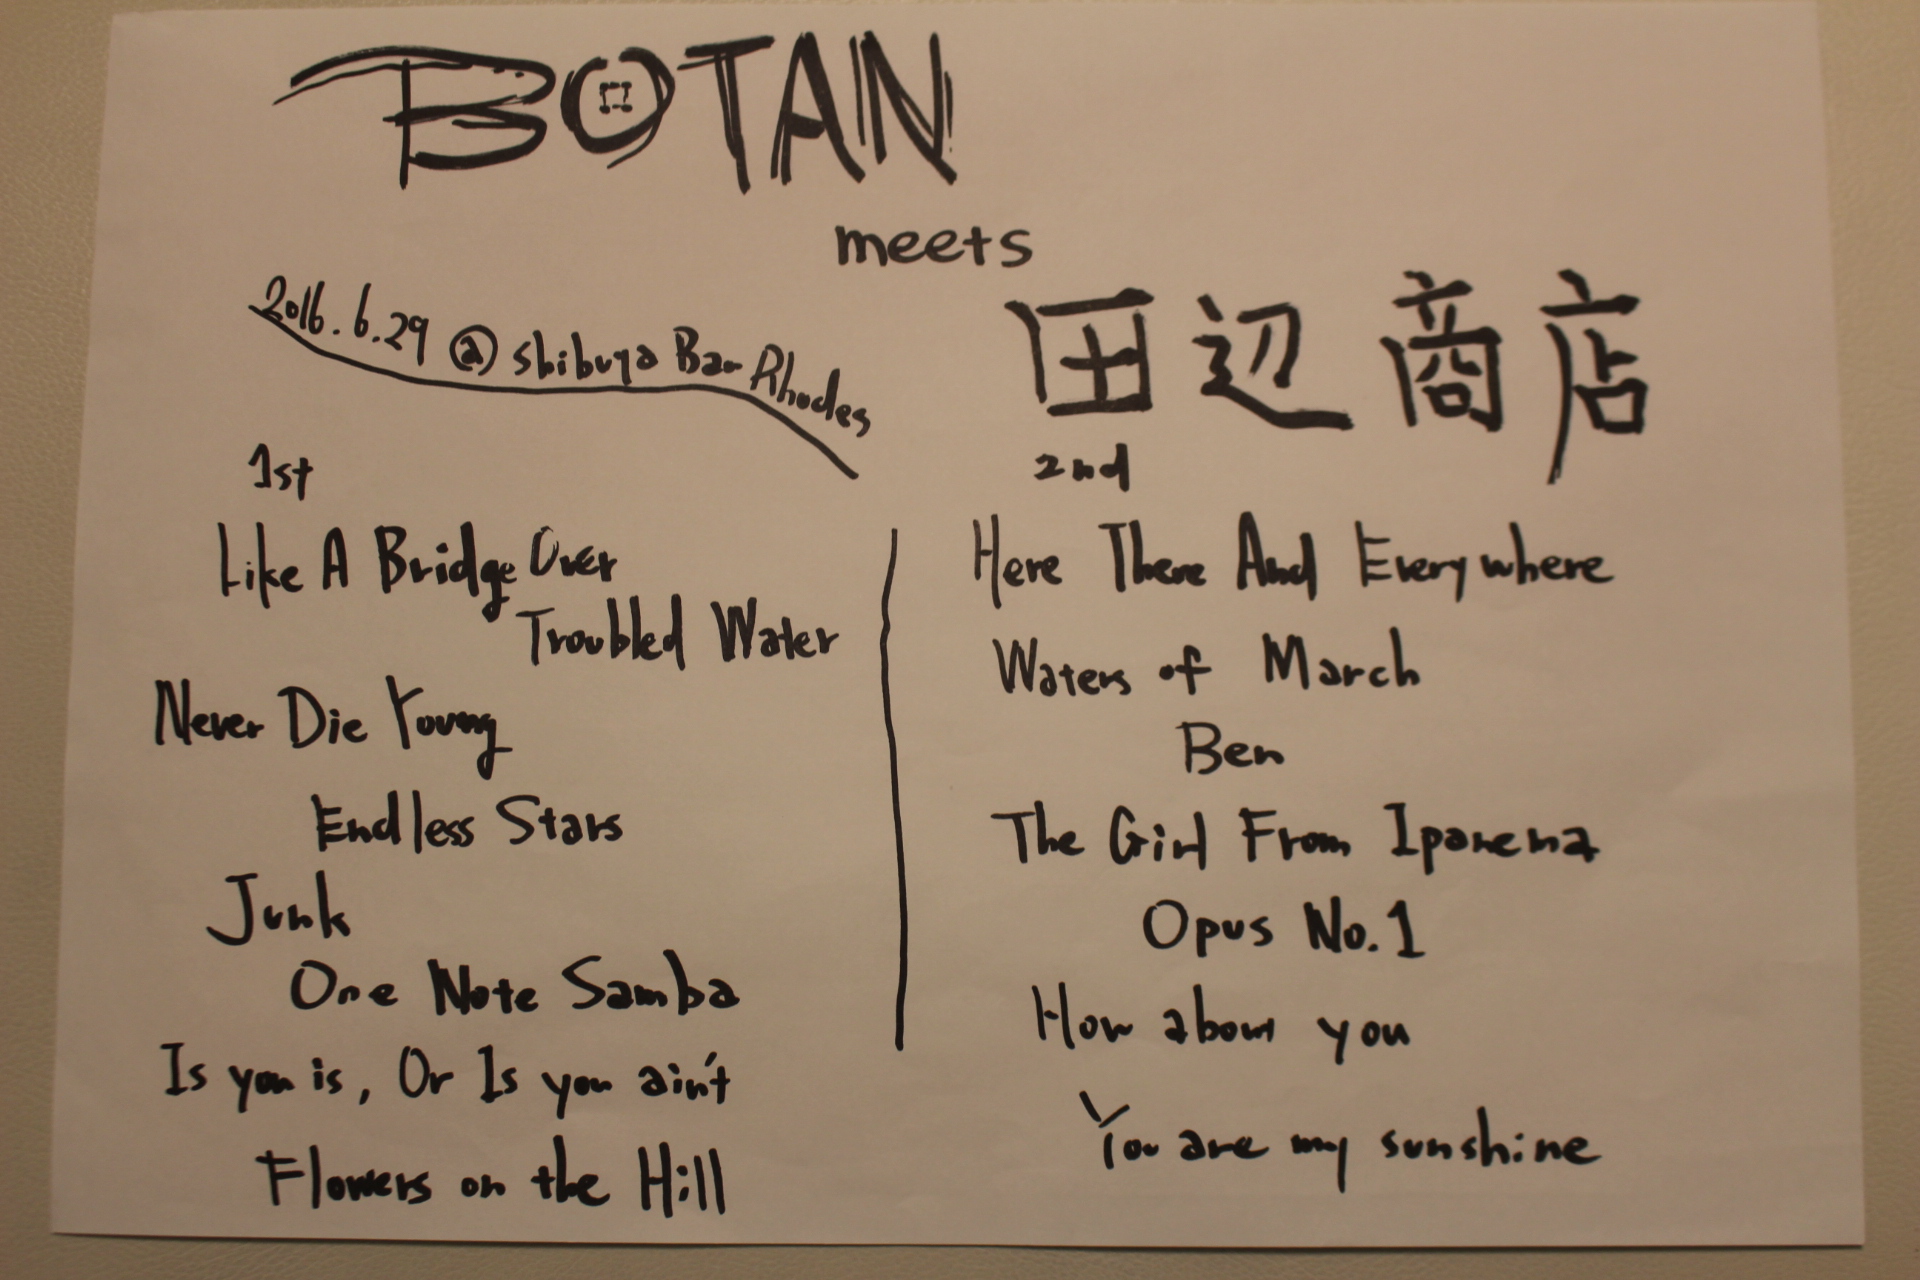 BOTAN
meets
田辺商店
2016.6.29 @ Shibuya Bar Rhodes
1st
Like A Bridge Over
Troubled Water
Never Die Young
Endless Stars
Junk
One Note Samba
Is you is, Or Is you ain't
Flowers on the Hill
2nd
Here There And Everywhere
Waters of March
Ben
The Girl From Ipanema
Opus No.1
How about you
You are my sunshine